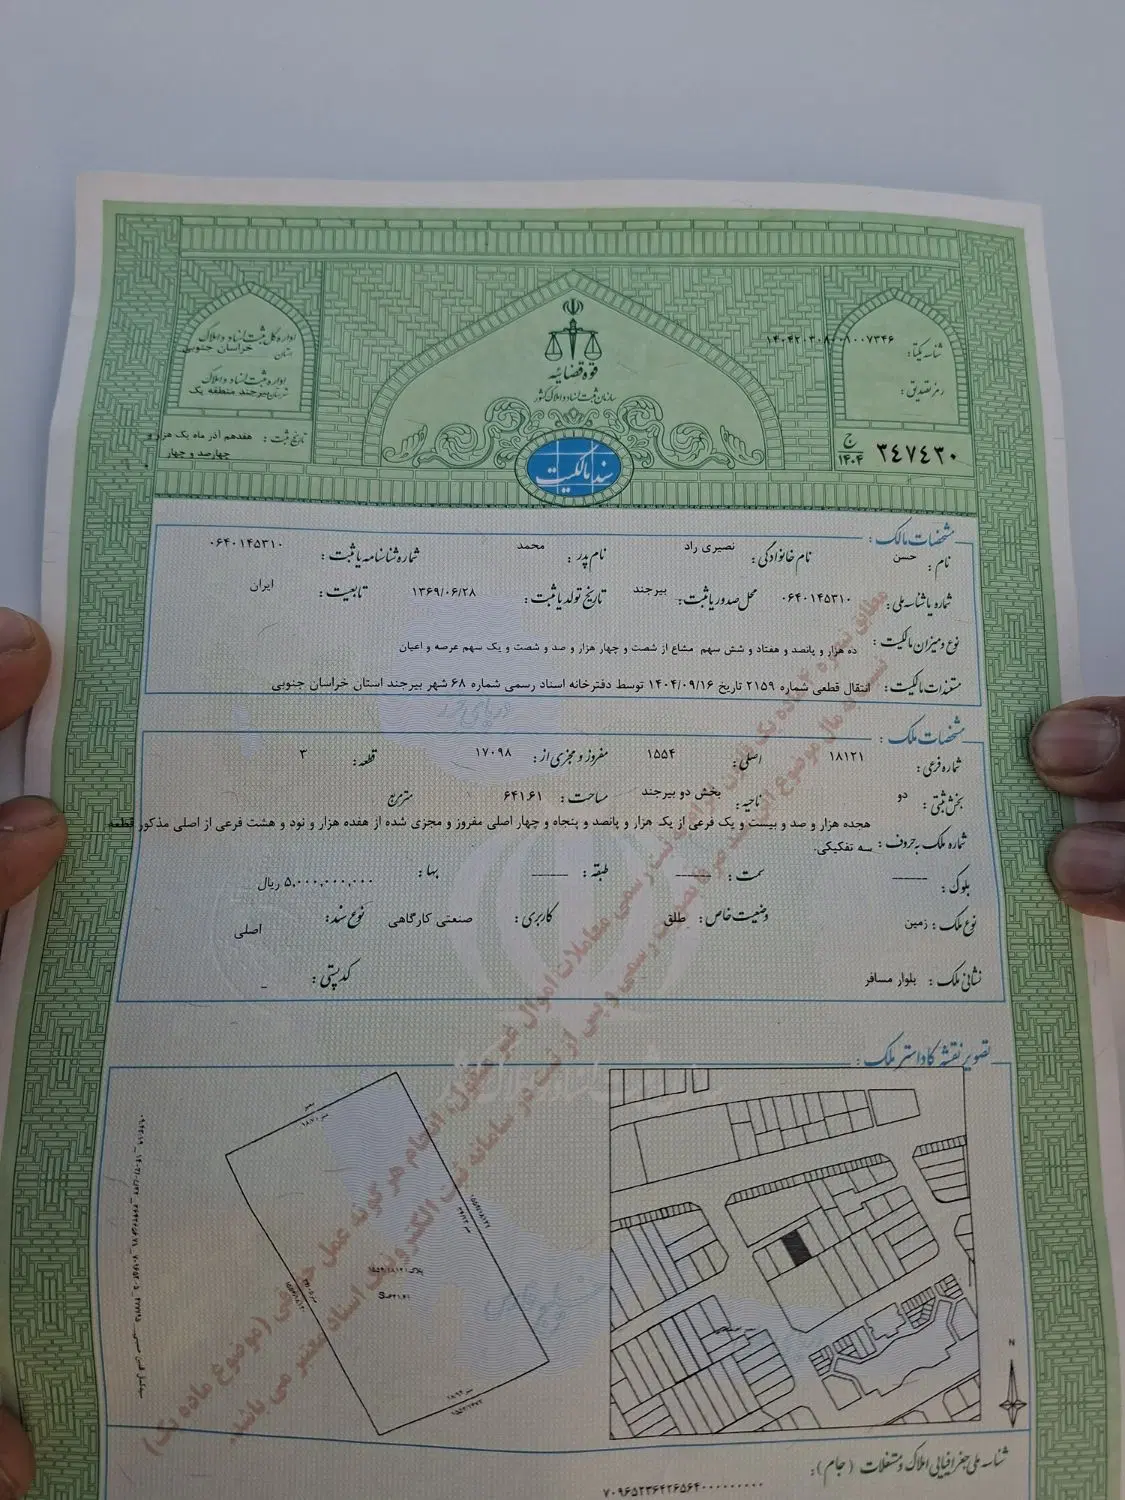 قوه قضائیه
سازمان ثبت اسناد و املاک کشور
سند مالکیت
اداره کل ثبت اسناد و املاک
استان خراسان جنوبی
اداره ثبت اسناد و املاک
شهرستان بیرجند منطقه یک
تاریخ ثبت : هفدهم آذر ماه یک هزار و
چهارصد و چهار
شناسه یکتا : ۱۴۰۴۲۰۳۰۸۰۰۱۰۰۷۳۴۶
رمز تصدیق :
۳۴۷۴۳۰ ج ۱۴۰۴
مشخصات مالک :
نام : حسن نام خانوادگی : نصیری راد نام پدر : محمد شماره شناسنامه یا ثبت : ۰۶۴۰۱۴۵۳۱۰
شماره یا شناسه ملی : ۰۶۴۰۱۴۵۳۱۰ محل صدور یا ثبت : بیرجند تاریخ تولد یا ثبت : ۱۳۶۹/۰۶/۲۸ تابعیت : ایران
نوع و میزان مالکیت : ده هزار و پانصد و هفتاد و شش سهم مشاع از شصت و چهار هزار و صد و شصت و یک سهم عرصه و اعیان
مستندات مالکیت : انتقال قطعی شماره ۲۱۵۹ تاریخ ۱۴۰۴/۰۹/۱۶ توسط دفترخانه اسناد رسمی شماره ۶۸ شهر بیرجند استان خراسان جنوبی
مشخصات ملک :
شماره فرعی : ۱۸۱۲۱ اصلی : ۱۵۵۴ مفروز و مجزی از : ۱۷۰۹۸ قطعه : ۳
بخش ثبتی : دو ناحیه : بخش دو بیرجند مساحت : ۶۴۱.۶۱ مترمربع
شماره ملک به حروف : هجده هزار و صد و بیست و یک فرعی از یک هزار و پانصد و پنجاه و چهار اصلی مفروز و مجزی شده از هفده هزار و نود و هشت فرعی از اصلی مذکور قطعه
سه تفکیکی.
بلوک : ــــــ سمت : ــــــ طبقه : ــــــ بها : ۵,۰۰۰,۰۰۰,۰۰۰ ریال
نوع ملک : زمین وضعیت خاص : طلق کاربری : صنعتی کارگاهی نوع سند : اصلی
نشانی ملک : بلوار مسافر کد پستی : _
تصویر نقشه کاداستر ملک :
N
شناسه ملی جغرافیایی املاک و مستغلات (جام) :